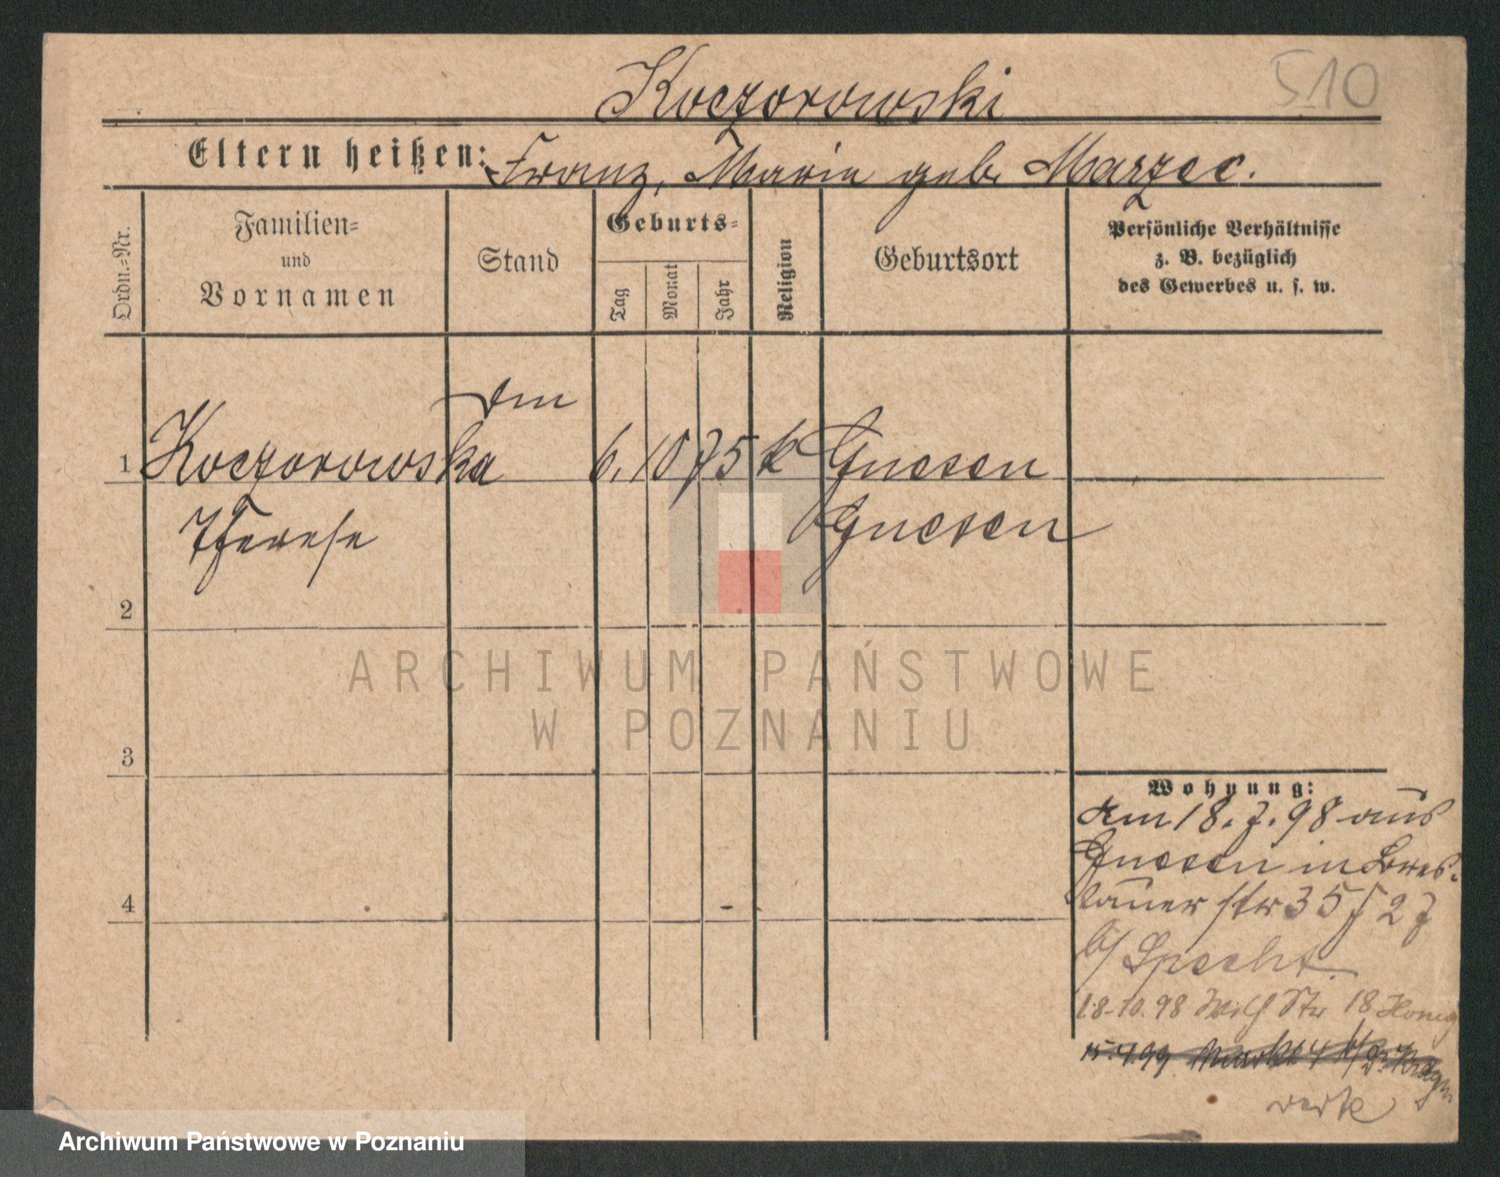 Koczorowski
510
Eltern heißen: Franz, Marie geb. Marzec.
Ordn.=Nr.
Familien=
und
Vornamen
Stand
Geburts=
Tag
Monat
Jahr
Religion
Geburtsort
Persönliche Verhältnisse
z. B. bezüglich
des Gewerbes u. s. w.
1 Koczorowska 6. 10 75 k Gnesen
Therese Gnesen
2
ARCHIWUM PAŃSTWOWE
W POZNANIU
3
4
Wohnung:
Am 18. 7. 98 aus
Gnesen in Bres-
lauer str 35
b/ Specht.
18-10.98 Str 18
15.4.99 Markt 4 b/
Archiwum Państwowe w Poznaniu